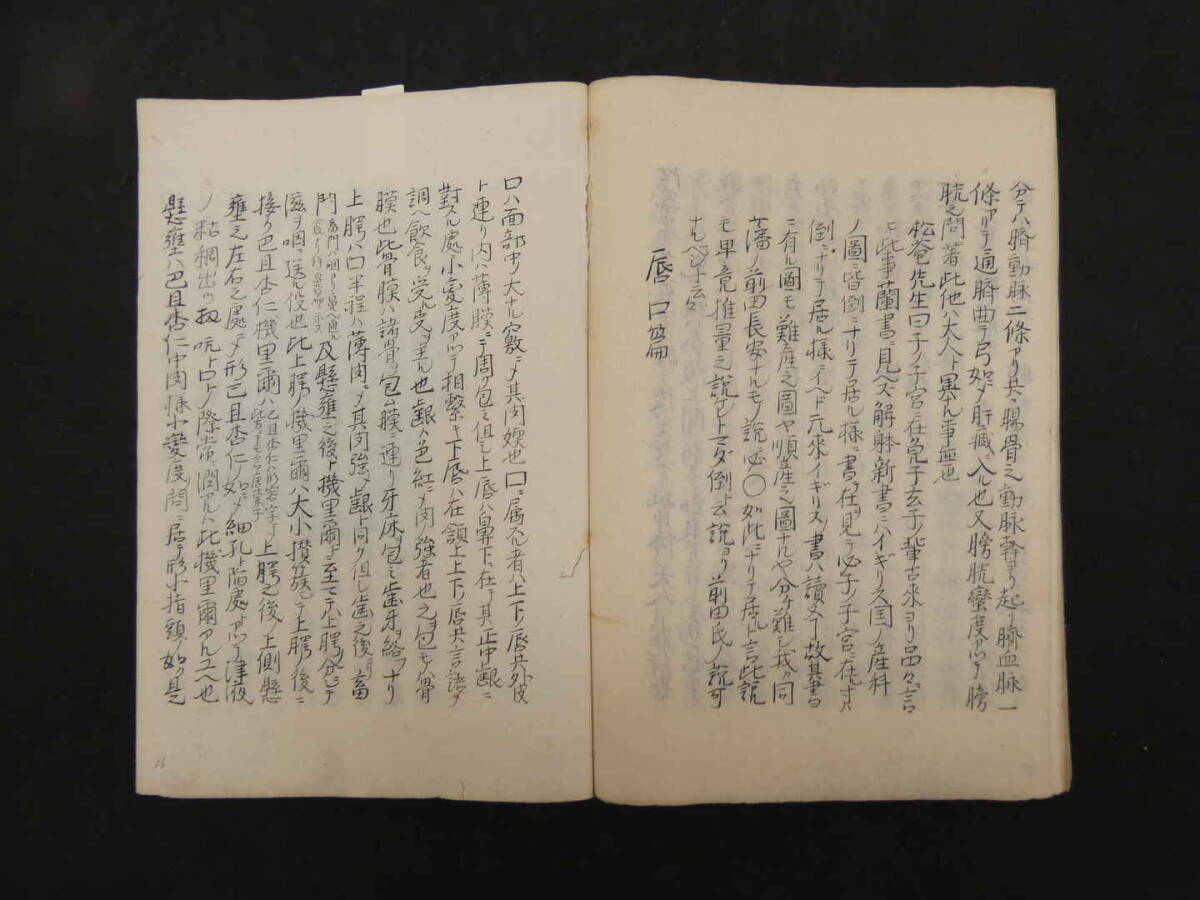 分ハ臍動脉二條アリ共ニ腸骨之動脉幹ヨリ起リ臍血脉一
條アリテ通臍曲テ弓如シテ肝臓ニ入ル也又膀胱蠻度アツテ膀
胱之間著此他ハ大人ト異ル事無也
松庵先生曰子ノ子宮ニ在
此事蘭書ニ見ヘズ解躰新書ニハイギリス国ノ産科
ノ圖ニ皆倒ニナリテ居ル様ニ書在ヲ見テ必子ノ子宮ニ在寸ハ
倒ニナリテ居ル様ニイヘド元來イギリスノ書ハ讀又丁故其書
ニ有ル圖モ難産之圖ヤ順産之圖ナルヤ分チ難シ我カ同
藩ノ前田長安ナルモノ説ニ必〇如此ニナリテ居ルト言此説
モ畢竟推量之説ナレトマダ倒ト云説ヨリ前田氏ノ説可
ナルベシト云々
唇口篇
口ハ面部中ノ大ナル竅ニシテ其肉軟也口ニ属スル者ハ上下ノ唇共外皮
ト連リ内ハ薄膜ニテ周ク包ミ但シ上唇ハ鼻下ニ在テ其正中齦ニ
對スル處小蠻度アツテ相繋キ下唇ハ在頷上上下ノ唇共言語ヲ
調ヘ飲食ヲ受ル支ヲ主ル也齦ハ色紅ニシテ肉ノ強者也之ヲ包モノ骨
膜也此骨膜ハ諸骨ヲ包ム膜ニ連リ牙床ヲ包ミ歯牙ヲ絡フナリ
上腭ハ口半程ハ薄肉ニシテ其肉強シテ齦ト同ク但シ歯之後ヨリ畜
門及懸壅之後ト機里爾ニ至
滋ヲ咽ニ送ル役也此上腭ノ機里爾ハ大小攅簇シテ上腭ノ後ニ
接ク巴且杏仁機里爾ハ上腭之後ノ上側懸
壅之左右之處ニシテ形巴且杏仁ノ如シテ細孔ト陷處アツテ津液
ノ粘稠出ツ扨吭ト口トノ際常ニ潤アルハ此機里爾アルユヘ也
懸壅ハ巴且杏仁中肉様小蠻度間ニ居テ形小指頭ノ如ク是
26